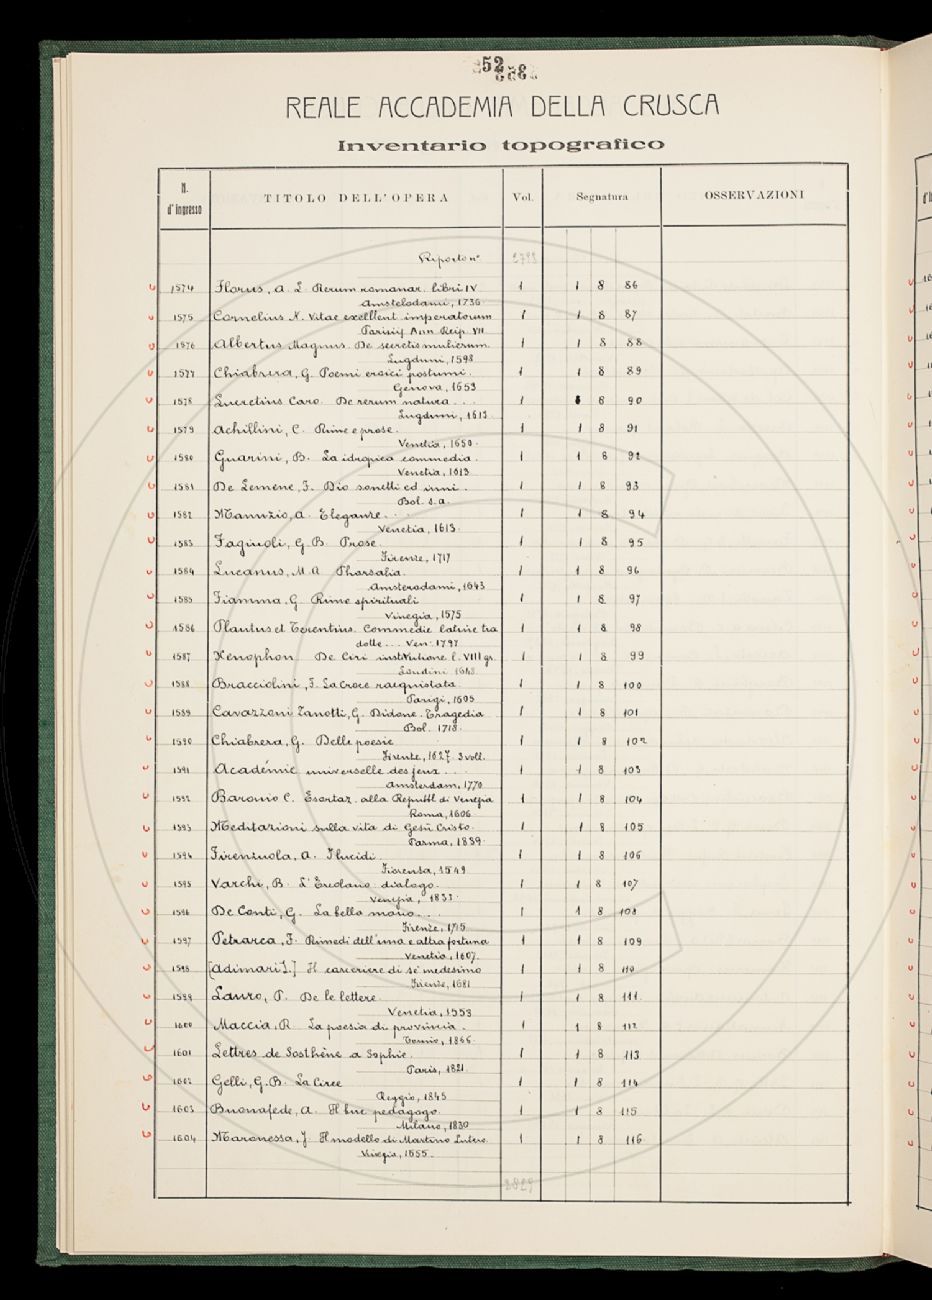 52
REALE ACCADEMIA DELLA CRUSCA
Inventario topografico
N. d'ingresso TITOLO DELL'OPERA Vol. Segnatura OSSERVAZIONI
Riporto n°
1574 Florus, A. L. Rerum romanar. libri IV 1 1 8 86
Amstelodami, 1736
1575 Cornelius N. Vitae excellent imperatorum 1 1 8 87
Parisij Ann Reip. VII
1576 Albertus Magnus. De secretis mulierum 1 1 8 88
Lugduni, 1598
1577 Chiabrera, G. Poemi eroici postumi. 1 1 8 89
Genova, 1653
1578 Lucretius Caro. De rerum natura . . . 1 8 90
Lugduni, 1613
1579 Achillini, C. Rime e prose. 1 1 8 91
Venetia, 1650.
1580 Guarini, B. La idropica commedia. 1 1 8 92
Venetia, 1613
1581 De Lemene, F. Dio sonetti ed inni. 1 1 8 93
Bol. s.a.
1582 Manuzio, A. Eleganze. . . 1 1 8 94
Venetia, 1613.
1583 Fagiuoli, G. B. Prose. 1 1 8 95
Firenze, 1717
1584 Lucanus, M. A. Pharsalia. 1 1 8 96
Amsterodami, 1643
1585 Fiamma, G. Rime spirituali 1 1 8 97
Vinegia, 1575
1586 Plautus et Terentius. Commedie latine tra 1 1 8 98
dotte... Ven. 1797
1587 Xenophon. De Ciri institutione l. VIII gr. 1 1 8 99
Londini
1588 Bracciolini, F. La Croce racquistata. 1 1 8 100
Parigi, 1605
1589 Cavazzoni Zanotti, G. Didone. Tragedia 1 1 8 101
Bol. 1718.
1590 Chiabrera, G. Delle poesie 1 1 8 102
Firenze, 1627. 3 voll.
1591 Académie universelle des jeux . . . 1 1 8 103
Amsterdam, 1770
1592 Baronio C. Esortaz. alla Republ. di Venezia 1 1 8 104
Roma, 1606
1593 Meditazioni sulla vita di Gesù Cristo. 1 1 8 105
Parma, 1839.
1594 Firenzuola, A. I lucidi. 1 1 8 106
Fiorenza, 1549
1595 Varchi, B. L'Ercolano: dialogo. 1 1 8 107
Venezia,
1596 De Conti, G. La bella mano. . . 1 1 8 108
Firenze, 1715
1597 Petrarca, F. Rimedi dell'una e altra fortuna 1 1 8 109
Venetia, 1607.
1598 [Adimari L.] Il carceriere di sé medesimo 1 1 8 110
Firenze, 1681
1599 Lauro, P. De le lettere. 1 1 8 111
Venetia, 1553
1600 Maccia, R. La poesia di provincia. 1 1 8 112
Torino, 1866.
1601 Lettres de Sosthène a Sophie. 1 1 8 113
Paris, 1821.
1602 Gelli, G. B. La Circe 1 1 8 114
Reggio, 1845
1603 Buonafede, A. Il bue pedagogo. 1 1 8 115
Milano, 1830
1604 Maronessa, J. Il modello di Martino Lutero. 1 1 8 116
Vinegia, 1555.